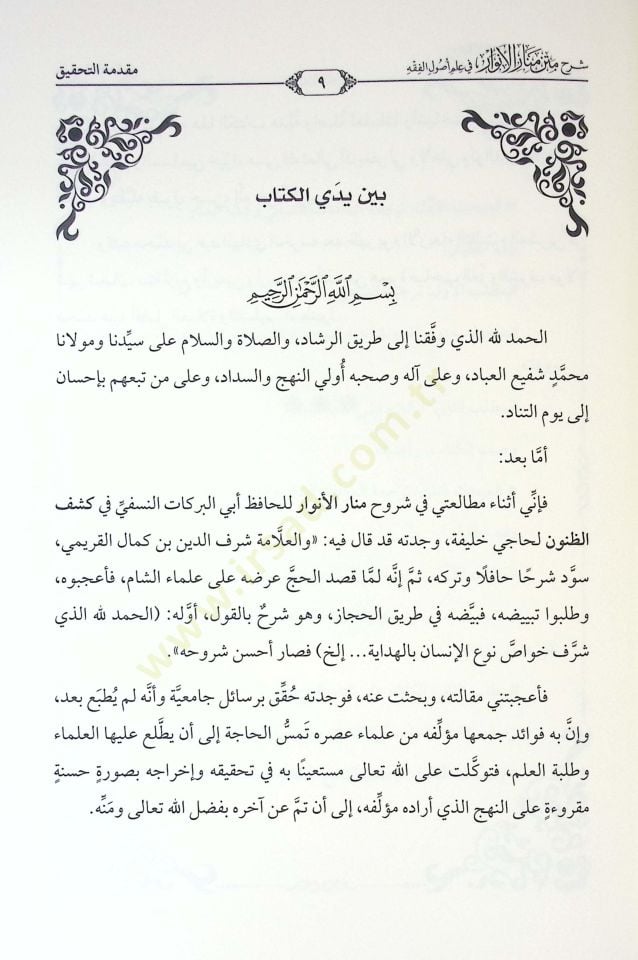 شرح متن منار الأنوار في علم أصول الفقه
٩
مقدمة التحقيق
بين يدَي الكتاب
بِسْمِ اللَّهِ الرَّحْمَٰنِ الرَّحِيمِ
الحمد لله الذي وفَّقنا إلى طريق الرشاد، والصلاة والسلام على سيِّدنا ومولانا
محمَّدٍ شفيع العباد، وعلى آله وصحبه أُولي النهج والسداد، وعلى من تبعهم بإحسان
إلى يوم التناد.
أمَّا بعد:
فإنِّي أثناء مطالعتي في شروح منار الأنوار للحافظ أبي البركات النسفيِّ في كشف
الظنون لحاجي خليفة، وجدته قد قال فيه: «والعلَّامة شرف الدين بن كمال القريمي،
سوَّد شرحًا حافلًا وتركه، ثمَّ إنَّه لمَّا قصد الحجَّ عرضه على علماء الشام، فأعجبوه،
وطلبوا تبييضه، فبيَّضه في طريق الحجاز، وهو شرحٌ بالقول، أوَّله: (الحمد لله الذي
شرَّف خواصَّ نوع الإنسان بالهداية... إلخ) فصار أحسن شروحه».
فأعجبتني مقالته، وبحثت عنه، فوجدته حُقِّق برسائل جامعيَّة وأنَّه لم يُطبَع بعد،
وإنَّ به فوائد جمعها مؤلِّفه من علماء عصره تَمسُّ الحاجة إلى أن يطَّلع عليها العلماء
وطلبة العلم، فتوكَّلت على الله تعالى مستعينًا به في تحقيقه وإخراجه بصورةٍ حسنةٍ
مقروءةٍ على النهج الذي أراده مؤلِّفه، إلى أن تمَّ عن آخره بفضل الله تعالى ومَنِّه.
www.irsad.com.tr